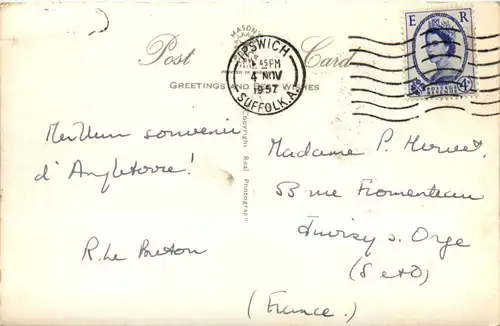 Post Card
GREETINGS AND BEST WISHES
IPSWICH
45 PM
4 NOV
1957
SUFFOLK. A.
E R
4D
MASON'S
Copyright Real Photograph
Meilleur souvenir
d'Angleterre!
R. Le Breton
Madame P. Hervet,
53 rue Fromenteau
Juvisy s. Orge
(S et O)
(France.)